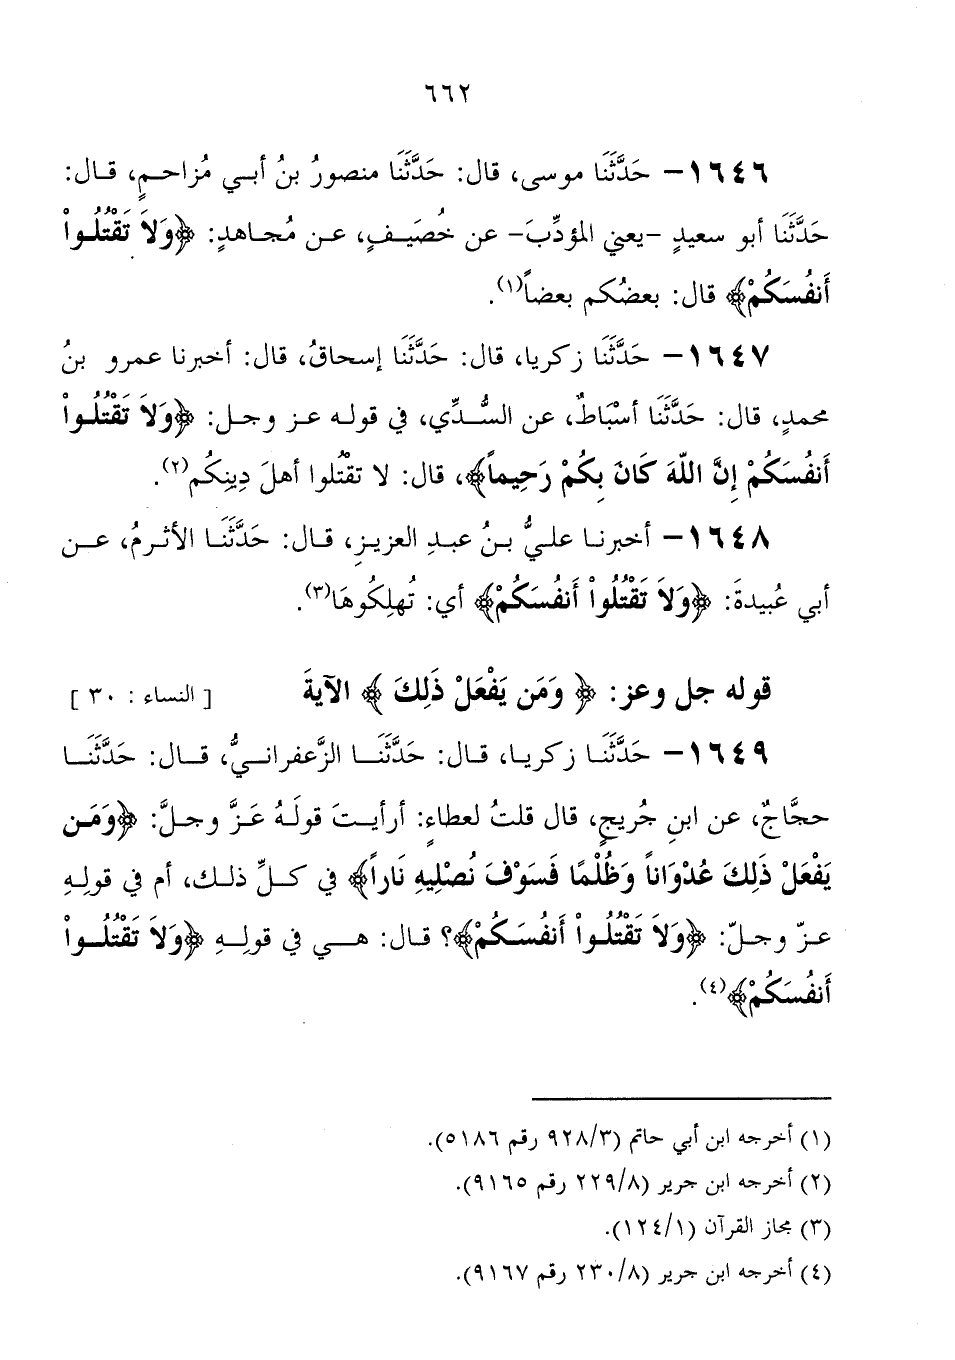 ٦٦٢
١٦٤٦- حَدَّثَنَا موسى، قال: حَدَّثَنَا منصورُ بنُ أبي مُزاحمٍ، قال:
حَدَّثَنَا أبو سعيدٍ -يعني المؤدِّبَ- عن خُصَيفٍ، عن مُجاهدٍ: ﴿وَلاَ تَقْتُلُواْ
أَنفُسَكُمْ﴾ قال: بعضُكم بعضاً(١).
١٦٤٧- حَدَّثَنَا زكريا، قال: حَدَّثَنَا إسحاقُ، قال: أخبرنا عمرو بنُ
محمدٍ، قال: حَدَّثَنَا أسْبَاطٌ، عن السُّدِّي، في قوله عز وجل: ﴿وَلاَ تَقْتُلُواْ
أَنفُسَكُمْ إِنَّ اللّهَ كَانَ بِكُمْ رَحِيماً﴾، قال: لا تقْتُلوا أهلَ دِينِكُم(٢).
١٦٤٨- أخبرنا عليُّ بنُ عبدِ العزيزِ، قال: حَدَّثَنَا الأثرمُ، عن
أبي عُبيدةَ: ﴿وَلاَ تَقْتُلُواْ أَنفُسَكُمْ﴾ أي: تُهلِكُوهَا(٣).
قوله جل وعز: ﴿ وَمَن يَفْعَلْ ذَلِكَ ﴾ الآيةَ [ النساء : ٣٠ ]
١٦٤٩- حَدَّثَنَا زكريا، قال: حَدَّثَنَا الزَّعفرانيُّ، قال: حَدَّثَنَا
حجَّاجٌ، عن ابنِ جُريجٍ، قال قلتُ لعطاءٍ: أرأيتَ قولَهُ عَزَّ وجلَّ: ﴿وَمَن
يَفْعَلْ ذَلِكَ عُدْوَاناً وَظُلْمًا فَسَوْفَ نُصْلِيهِ نَاراً﴾ في كلِّ ذلك، أم في قولِهِ
عزّ وجلّ: ﴿وَلاَ تَقْتُلُواْ أَنفُسَكُمْ﴾؟ قال: هي في قولِهِ ﴿وَلاَ تَقْتُلُواْ
أَنفُسَكُمْ﴾(٤).
(١) أخرجه ابن أبي حاتم (٩٢٨/٣ رقم ٥١٨٦).
(٢) أخرجه ابن جرير (٢٢٩/٨ رقم ٩١٦٥).
(٣) مجاز القرآن (١٢٤/١).
(٤) أخرجه ابن جرير (٢٣٠/٨ رقم ٩١٦٧).